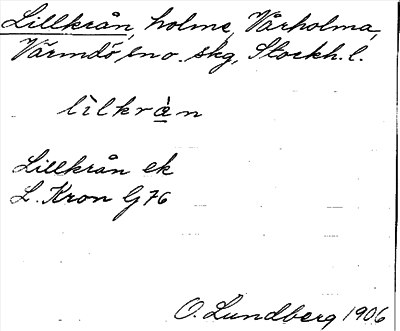 Lillkrån, holme, Vårholma,
Värmdö, sn o. skg, Stockh. l.
lìlkrà̲n
Lillkrån ek
L. Kron G 76
O. Lundberg 1906